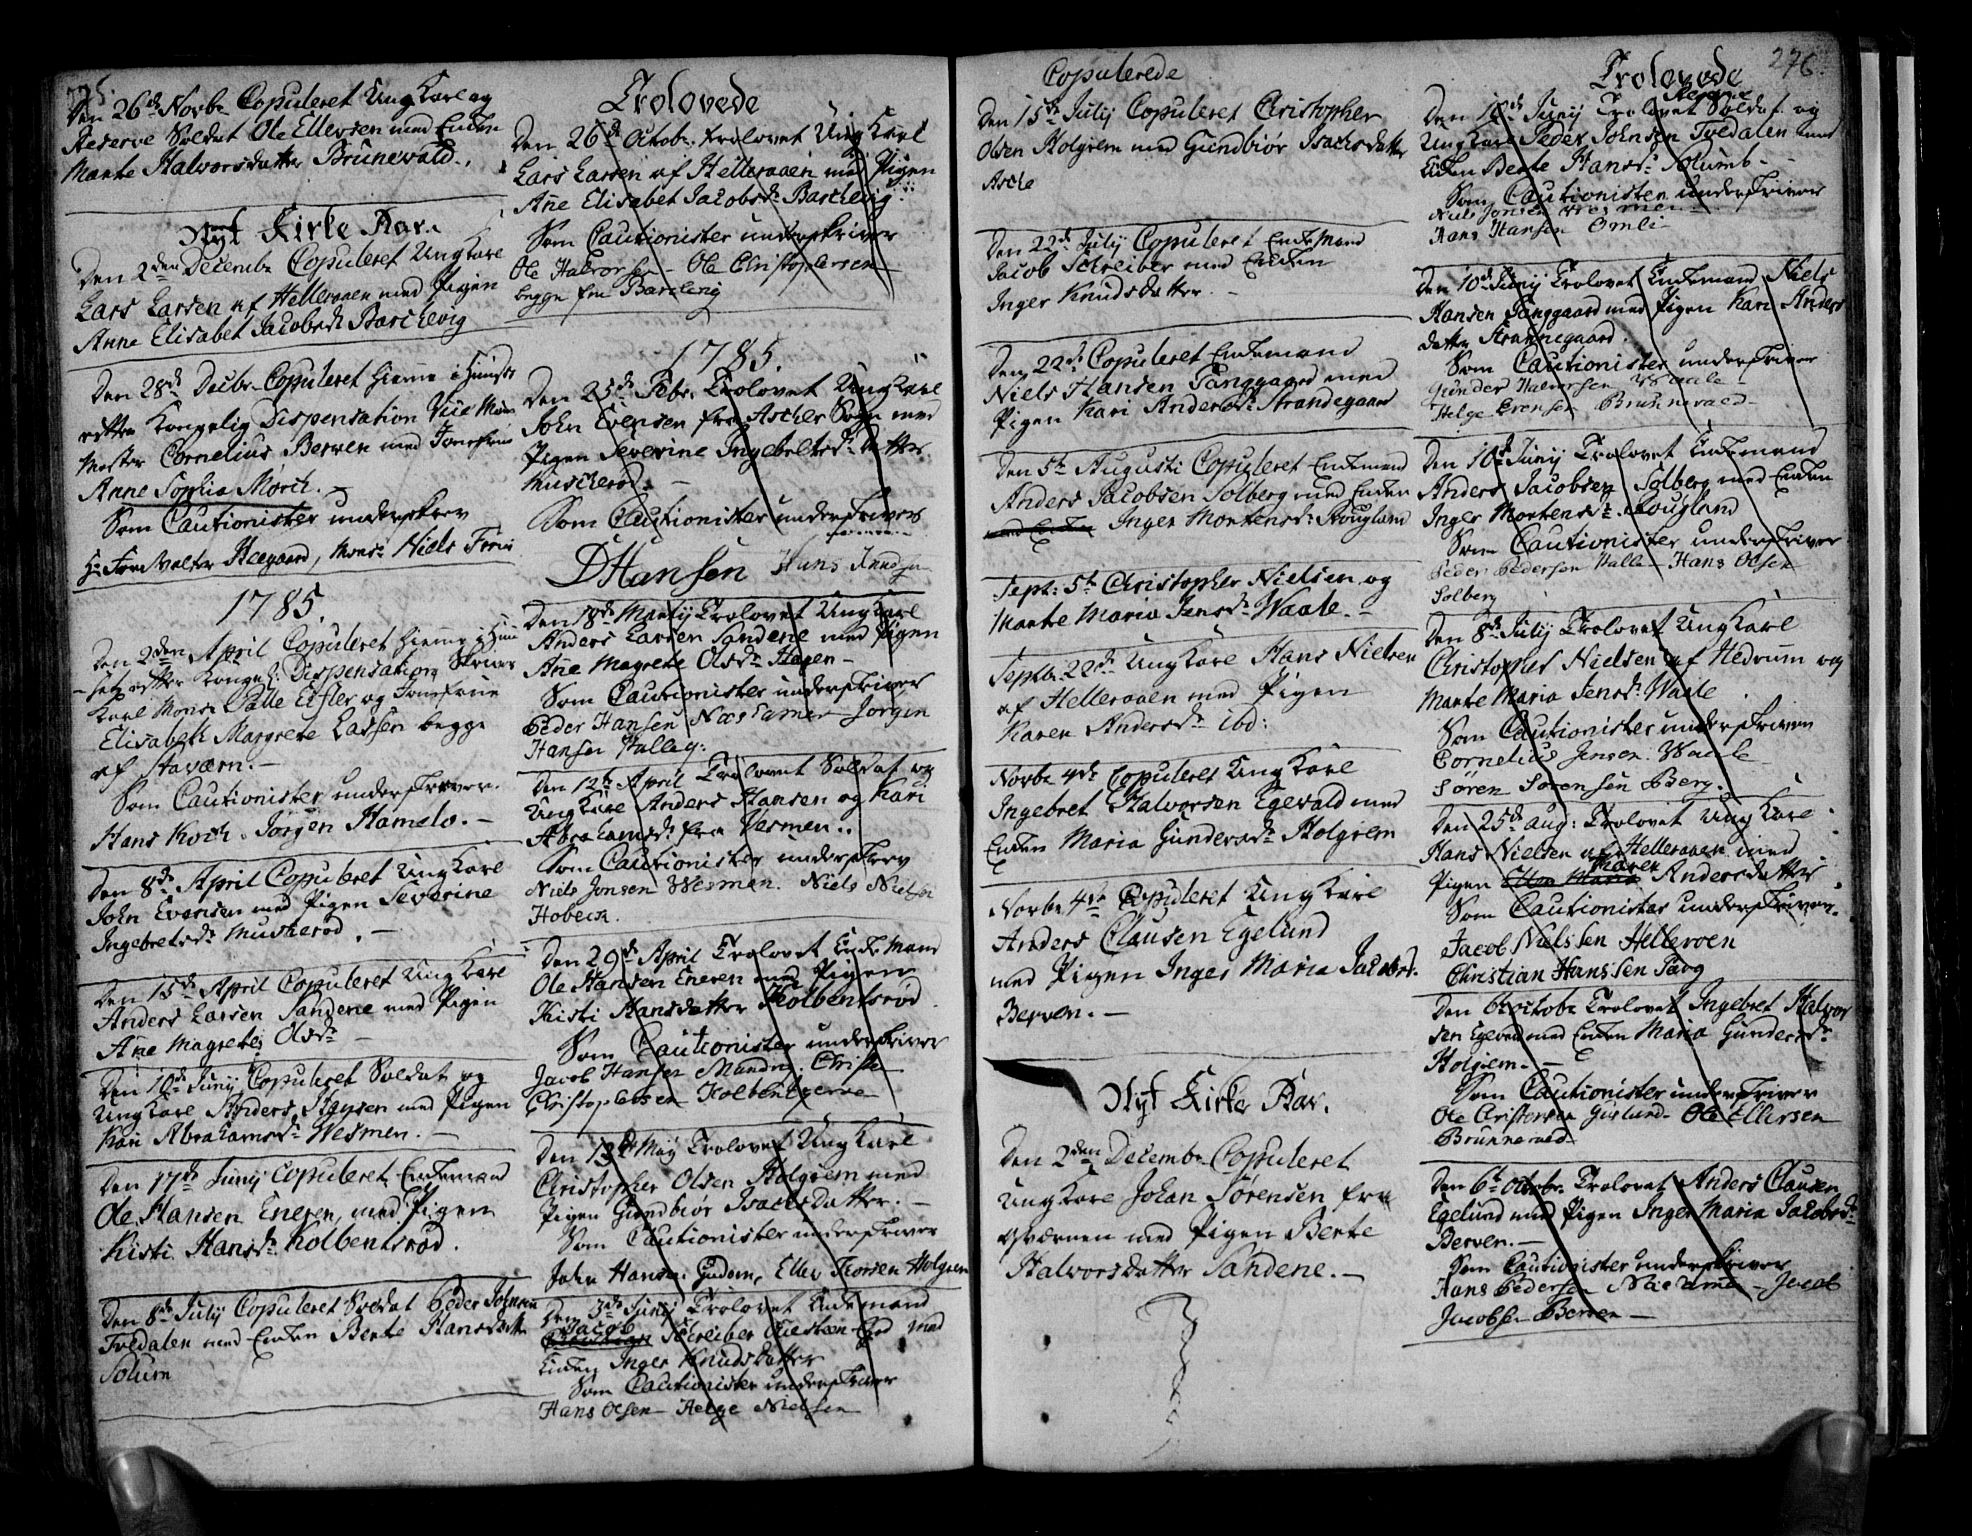 275.
Den 26de Novbr Copuleret Ungkarl og
Reserve Soldat Ole Ellevsen med Enken
Marthe Halvorsdatter Brunevald.
Nyt Kirke Aar.
Den 2den Decembr Copuleret Ungkarl
Lars Larsen af Helleraaen med Pigen
Anne Elisabet Jacobsdr Barchevig
Den 28de Decbr Copuleret hiemme i Huuset
efter Kongelig Dispensation
Mester Cornelius Berven med Jomfrue
Anne Sophia Mørch.
Som Cautionister underskrev
Hr Forvalter Heegaard, Monsr Niels Friis
1785.
Den 2den April Copuleret hiemme i Huu-
set efter Kongel: Dispensation
Karl Monsr Palle Eisler og Jomfrue
Elisabeth Margrete Lassen begge
af Staværn.
Som Cautionister underskrever.
Hans Koch. Jørgen Hamelo.
Den 8de April Copuleret Ungkarl
John Evensen med Pigen Severine
Ingebretsdr Muscherød.
Den 15de April Copuleret Ungkarl
Anders Larsen Sandene med Pigen
Ane Magrete Olsdr
Den 10de Junij Copuleret Soldat og
Ungkarl Anders Hansen med Pigen
Kari Abrahamsdr Wesmen.
Den 17de Junij Copuleret Enkemand
Ole Hansen Eneren, med Pigen
Kisti Hansdr Kolbentsrød.
Den 8de Julij Copuleret Soldat Peder Johnsen
Tvedalen med Enken Berte Hansdatter
Solum
Trolovede
Den 26de Octob: trolovet Ungkarl
Lars Larsen af Helleraaen med Pigen
Ane Elisabet Jacobsdr Barchevig.
Som Cautionister underskriver
Ole Halvorsen – Ole Christophersen
begge fra Barchevig
1785.
Den 25de Febr. Trolovet Ungkarl
John Evensen fra Ascher Sogn med
Pigen Severine Ingebretsdatter
Muscherød.
Som Cautionister underskriver
DHansen Hans Knudsen
Den 18de Martij Trolovet Ungkarl
Anders Larsen Sandene med Pigen
Ane Magrete Olsdr Hagen
Som Cautionister underskriver
Peder Hansen Næs Jørgen
Hansen Hallag.
Den 12te April Trolovet Soldat og
Ungkarl Anders Hansen og Kari
Abrahamsdr fra Vesmen.
Som Cautionister underskrev
Niels Jonsen Wesmen. Niels Nielsen
Hobech.
Den 29de April Trolovet Enkemand
Ole Hansen Eneren med Pigen
Kisti Hansdatter Kolbentsrød
Som Cautionister underskriver
Jacob Hansen Christen
Christophersen Kolbentzerne
Den 13de Maij Trolovet Ungkarl
Christopher Olsen Holgrem med
Pigen Gundbiør Isachsdatter.
Som Cautionister underskriver
John Hansen Gudem, Ellev Thorsen Holgrem
Den 3de Junij Trolovet Enkemand
Jacob
Schreiber med
Enken Inger Knudsdatter
Som Cautionister underskriver
Hans Olsen – Helge Nielsen
Copulerede
Den 15de Julij Copuleret Christopher
Olsen Holgrem med Gundbiør Isachsdatter
Asche
Den 22de Julij Copuleret Enkemand
Jacob Schreiber med Enken
Inger Knudsdatter.
Den 22de Copuleret Enkemand
Niels Hansen Tanggaard med
Pigen Kari Andersdr Strandegaard
Den 5te Augusti Copuleret Enkemand
Anders Jacobsen Solberg med Enken
med Enken Inger Mortensdr Rougland
Septr: 5te Christopher Nielsen og
Marthe Maria Jensdr Waale.
Septbr 22de Ungkarl Hans Nielsen
af Helleraaen med Pigen
Karen Andersdr ibd:
Novbr 4de Copuleret Ungkarl
Ingebret Halvorsen Egevald med
Enken Maria Gundersdr Holgrem
Novbr 4de Copuleret Ungkarl
Anders Clausen Egelund
med Pigen Inger Maria Jacobsd.
Berven.
Nyt Kirke Aar.
Den 2den Decembr Copuleret
Ungkarl Johan Sørensen fra
med Pigen Berte
Halvorsdatter Sandene.
276.
Trolovede
Reserve
Den 10de Junij Trolovet Soldat og
Ungkarl Peder Johnsen Tvedalen med
Enken Berte Hansdr Solumb
Som Cautionister underskriver
Niels Jonsen Wesmen
Hans Hansen Omli
Den 10de Junij Trolovet Enkemand Niels
Hansen Tanggaard med Pigen Kari Anders
datter Strandegaard.
Som Cautionister underskriver
Gunder Halvorsen Waale
Helge Evensen Brunnevald
Den 10de Junij Trolovet Enkemand
Anders Jacobsen Solberg med Enken
Inger Mortensdr Rougland
Som Cautionister underskriver
Peder Pedersen Halle – Hans Olsen
Solberg
Den 8de Julij Trolovet Ungkarl
Christopher Nielsen af Hedrum og
Marthe Maria Jensdr Waale
Som Cautionister underskriver
Cornelius Jensen Waale
Søren Sørensen Berg.
Den 25de Aug: Trolovet Ungkarl
Hans Nielsen af Helleraaen med
Karen
Pigen Ellen Maria Andersdatter
Som Cautionister underskriver.
Jacob Nielssen Helleroen
Christian Hanssen Torg
Den 6te Octobr Trolovet Ingebret Halvor
sen Egevald med Enken Maria Gundersdr
Holgrem.
Som Cautionister underskriver
Ole Christensen Guslund – Ole Ellevsen
Brunnevald
Den 6te Octobr. Trolovet Anders Clausen
Egelund med Pigen Inger Maria Jacobsdr
Berven.
Som Cautionister underskriver
Hans Pedersen – Jacob
Jacobsen Berven